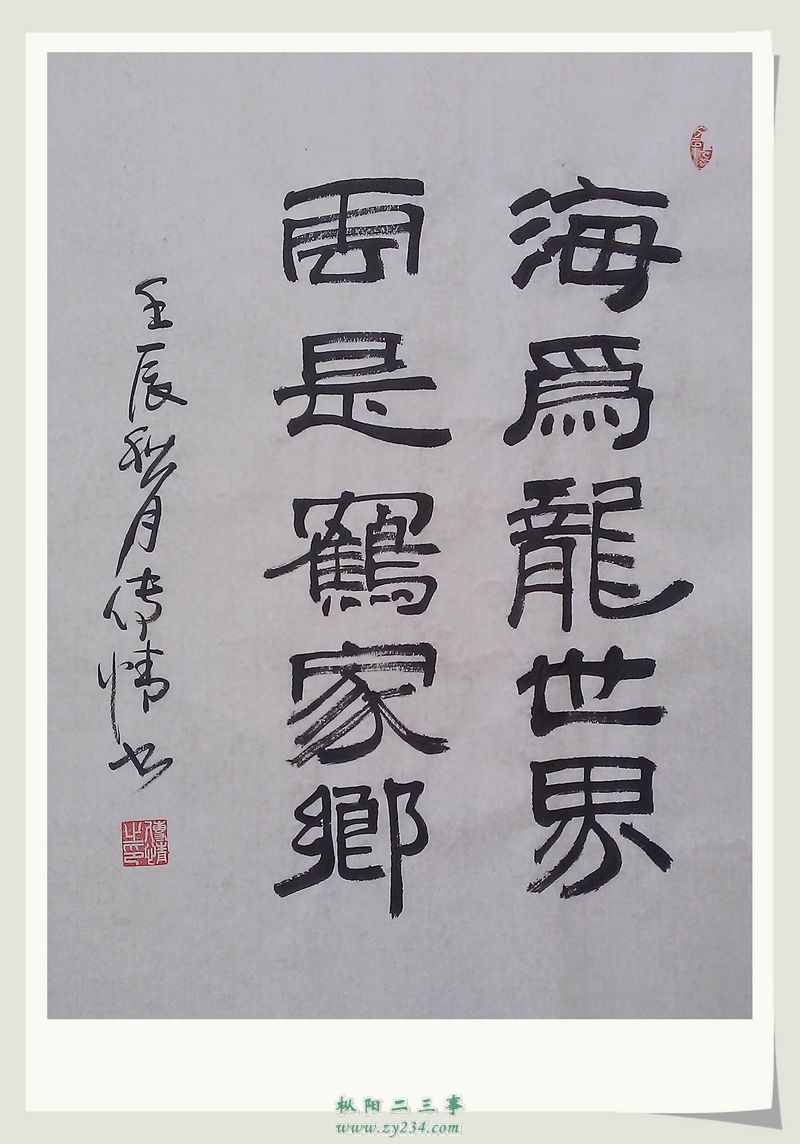 海爲龍世界
雲是鶴家鄉
壬辰秋月傳情书
傳情之印
枞阳二三事
www.zy234.com